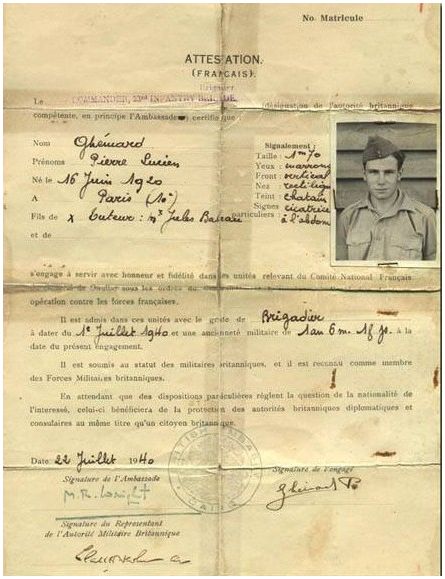 No. Matricule
ATTESTATION.
(FRANÇAIS).
Brigadier
Le COMMANDER, 23rd INFANTRY BRIGADE. (désignation de l'autorité britannique
compétente, en principe l'Ambassade) certifie que
Nom Ghémard
Prénoms Pierre Lucien
Né le 16 Juin 1920
à Paris (10e)
Fils de x Tuteur: Mr Jules
et de
Signalement:
Taille: 1m70
Yeux: marrons
Front: vertical
Nez: rectiligne
Teint: chatain
Signes particuliers: cicatrice à l'abdom
s'engage à servir avec honneur et fidélité dans les unités relevant du Comité National Français
de Gaulle sous les ordres du
opération contre les forces françaises.
Il est admis dans ces unités avec le grade de Brigadier
à dater du 1e Juillet 1940 et une ancienneté militaire de 1 an 6 m. 15 jo. à la
date du présent engagement.
Il est soumis au statut des militaires britanniques, et il est reconnu comme membre
des Forces Militaires britanniques.
En attendant que des dispositions particulières règlent la question de la nationalité de
l'intéressé, celui-ci bénéficiera de la protection des autorités britanniques diplomatiques et
consulaires au même titre qu'un citoyen britannique.
Date: 22 Juillet 1940
Signature de l'Ambassade
Signature de l'engagé
Ghémard P.
BRITISH EMBASSY
CAIRO
Signature du Représentant
de l'Autorité Militaire Britannique